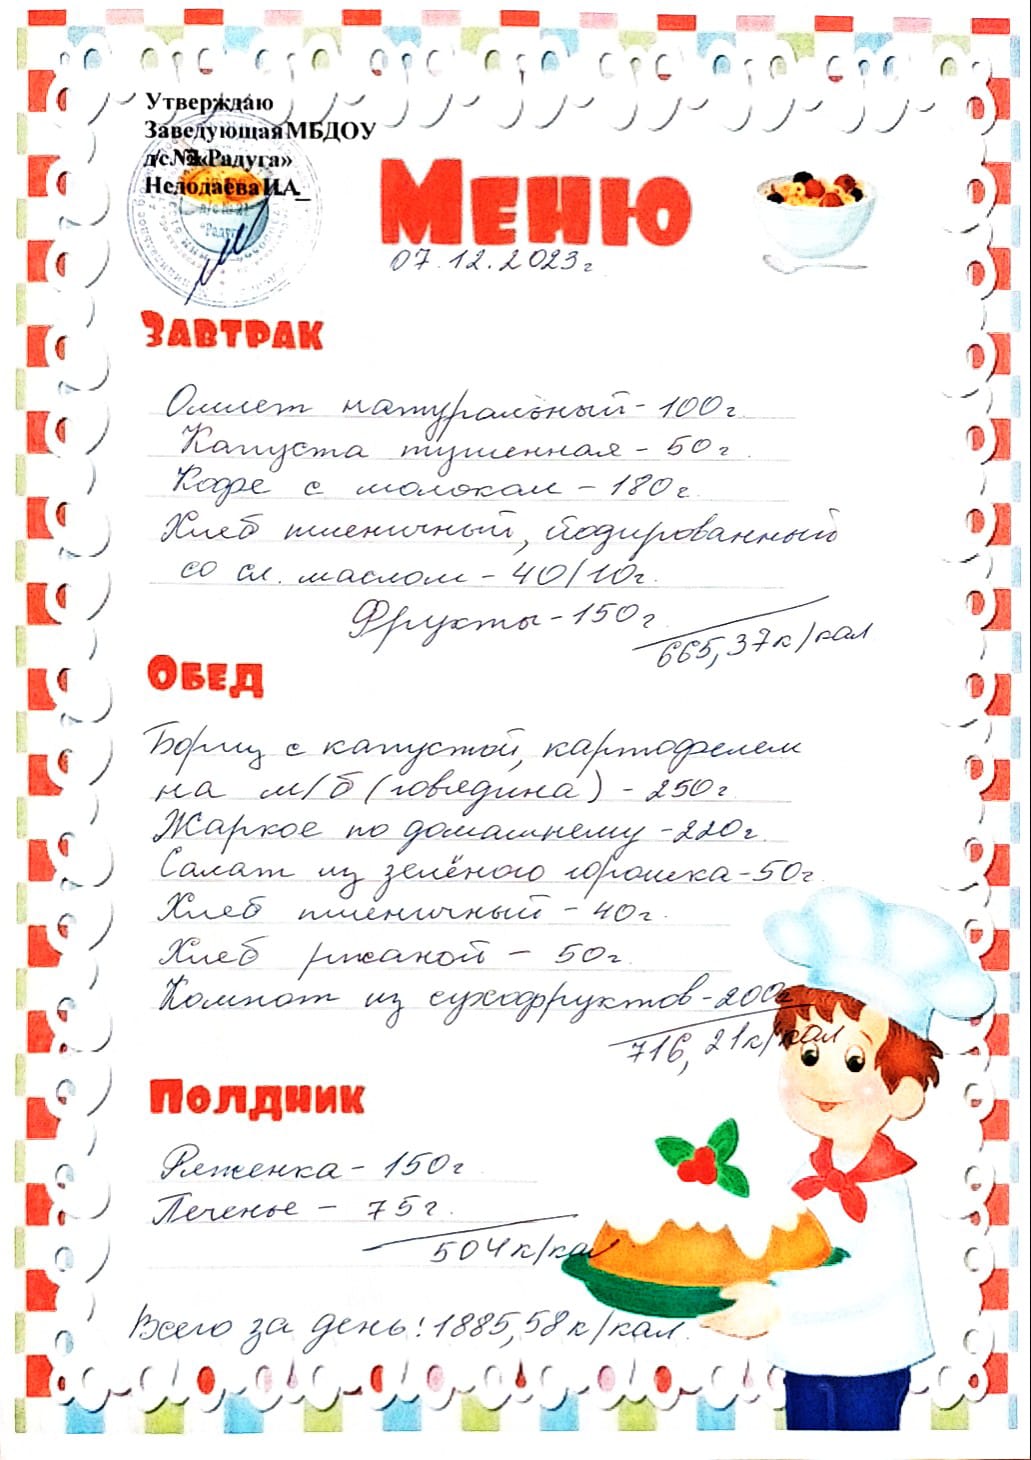 Утверждаю
Заведующая МБДОУ
д/с «Радуга»
Недодаева И.А._
Меню
07.12.2023г
Завтрак
Омлет натуральный - 100г
Капуста тушенная - 50г
Кофе с молоком - 180г.
Хлеб пшеничный, йодированный
со сл. маслом - 40/10г.
Фрукты - 150г
665,37к/кал
Обед
Борщ с капустой, картофелем
на м/б (говядина) - 250г
Жаркое по домашнему - 220г.
Салат из зелёного горошка - 50г
Хлеб пшеничный - 40г.
Хлеб ржаной - 50г.
Компот из сухофруктов - 200г
716,21к/кал
Полдник
Ряженка - 150г
Печенье - 75г.
504к/кал
Всего за день: 1885,58к/кал.